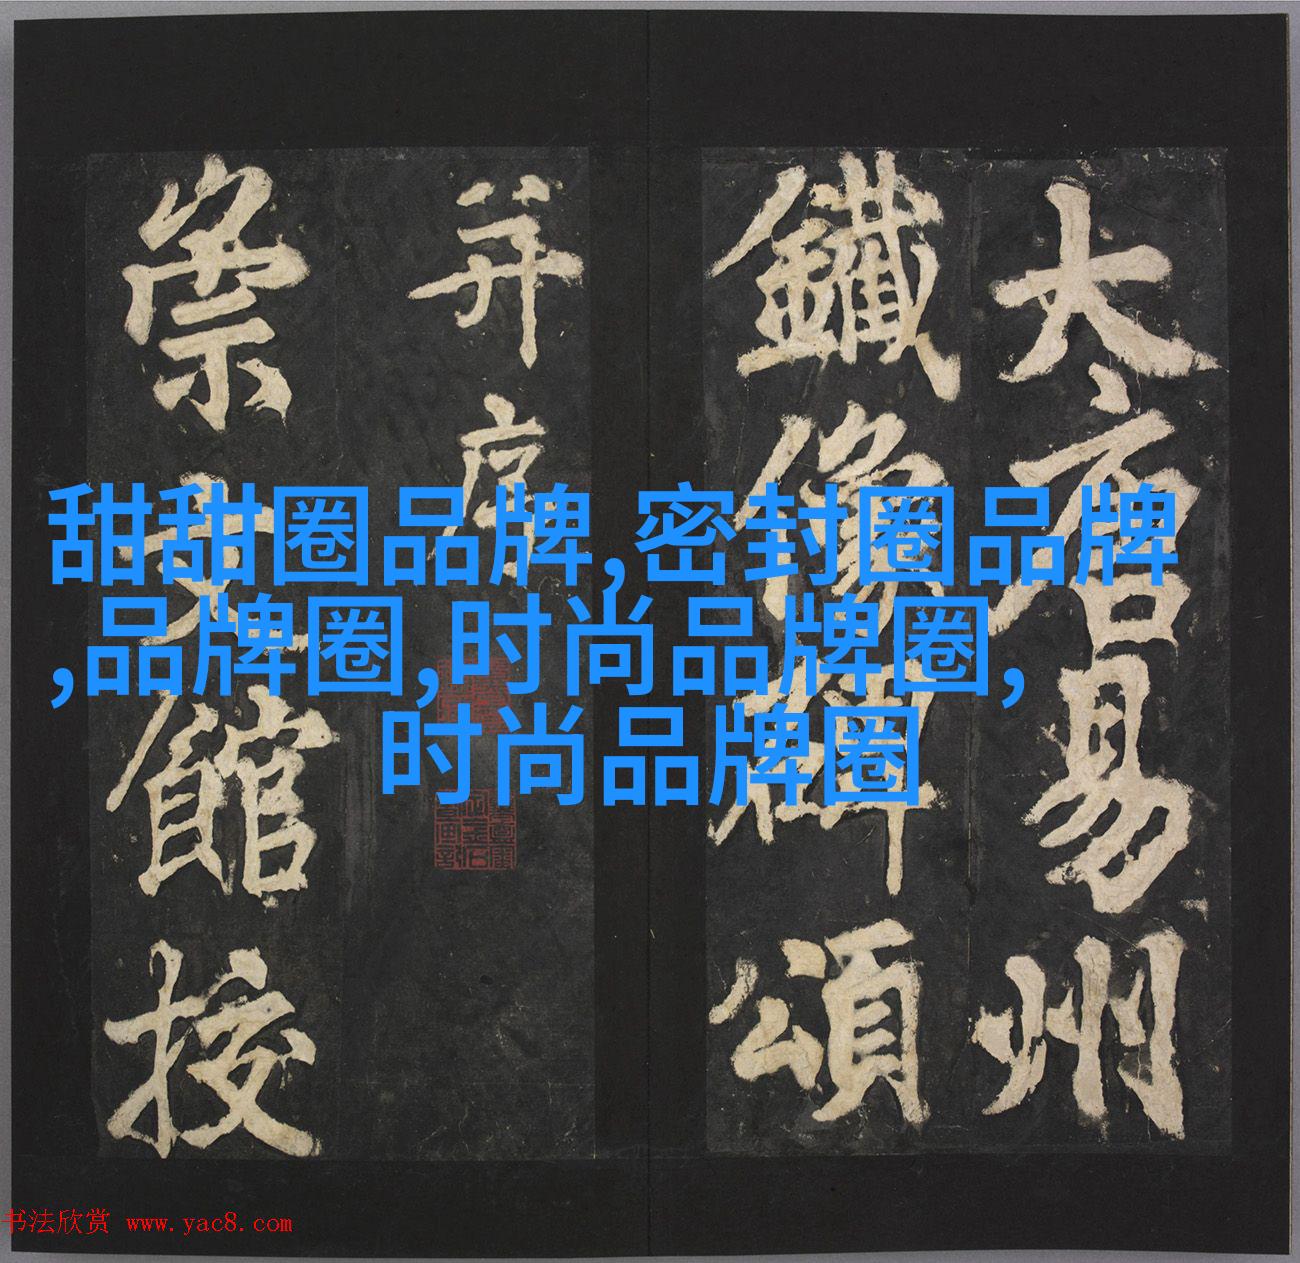 大唐易州
鐵像碑頌
并序
崇文館校
甜甜圈品牌,密封圈品牌
,品牌圈,时尚品牌圈,
时尚品牌圈
书法欣赏 www.yac8.com